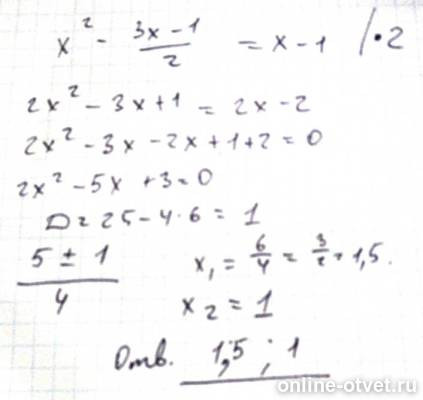 x² - (3x - 1)/2 = x - 1 /·2
2x² - 3x + 1 = 2x - 2
2x² - 3x - 2x + 1 + 2 = 0
2x² - 5x + 3 = 0
D = 25 - 4·6 = 1
(5 ± 1)/4
x₁ = 6/4 = 3/2 = 1,5.
x₂ = 1
Отв. 1,5 ; 1
online-otvet.ru